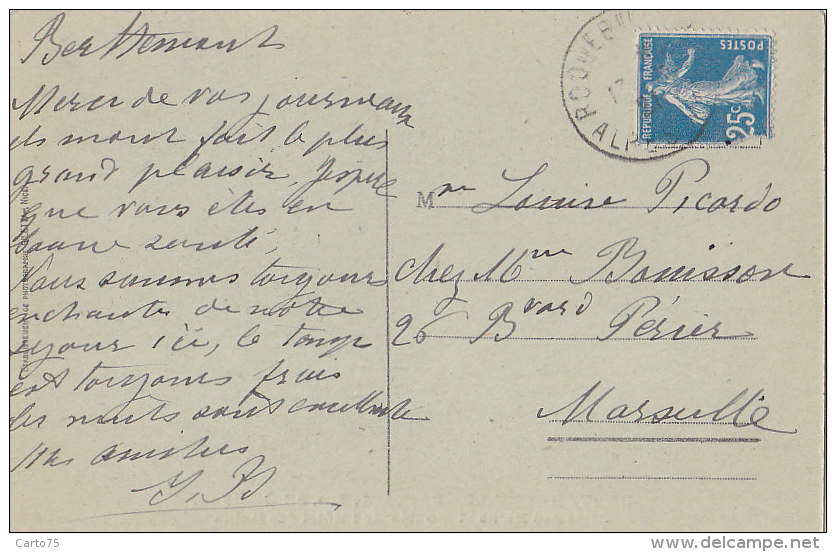 Berthemont
Merci de vos journaux
ils mont fait le plus
grand plaisir, Jespere
que vous êtes en
bonne santé,
Nous sommes toujours
enchantés de notre
séjour ici, le temps
est toujours frais
les nuits sont excellente
mes amitiés
J. B
ROQUEB
ALP
REPUBLIQUE FRANÇAISE
POSTES
25c
Mme Louise Picardo
chez Mme Bouisson
26 Bvard Périer
Marseille
Carto75
delcampe.net